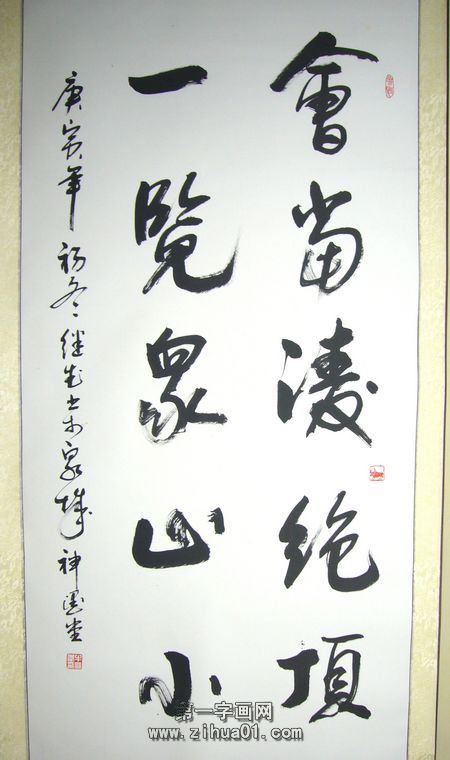 會當凌绝頂
一覽眾山小
庚寅年初冬继先书于泉城神墨堂
第一字画网
www.zihua01.com